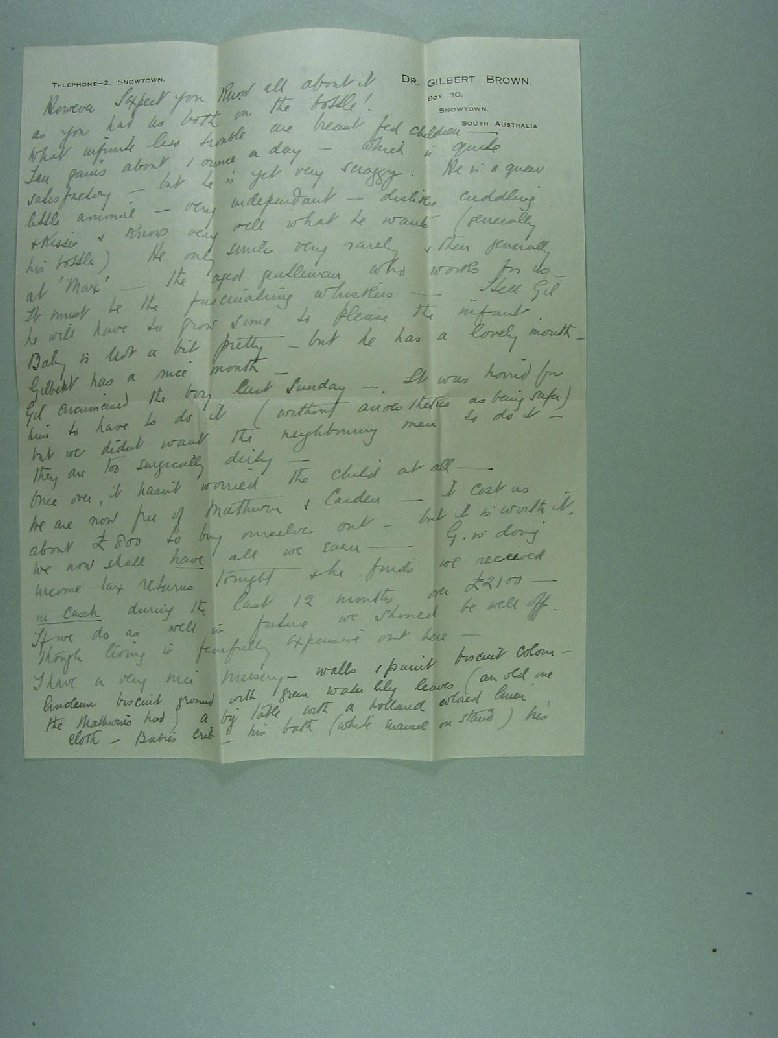 TELEPHONE-2, SNOWTOWN.
DR. GILBERT BROWN.
BOX 30,
SNOWTOWN,
SOUTH AUSTRALIA
However I expect you know all about it
as you had us both on the bottle!
What infinite less trouble are breast fed children —
Ian gains about 1 ounce a day — which is quite
satisfactory — but he is yet very scraggy. He is a queer
little animile — very independant — dislikes cuddling
& kisses & knows very well what he wants (generally
his bottle) He only smiles very rarely & then generally
at 'Max' — the aged gentleman who works for us —
It must be the fascinating whiskers — I tell Gil
he will have to grow some to please the infant.
Baby is not a bit pretty — but he has a lovely mouth —
Gilbert has a nice mouth —
Gil circumcised the boy last Sunday —. It was horrid for
him to have to do it (without anaesthetics as being safer)
but we didnt want the neighbouring men to do it —
they are too surgically dirty —
Once over, it hasn't worried the child at all —
We are now free of Mathwin & Carden — It cost us
about £800 to buy ourselves out — but it is worth it.
We now shall have all we earn — G. is doing
income tax returns tonight & he finds we received
in cash during the last 12 months over £2100 —
If we do as well in future we should be well off.
Though living is fearfully expensive out here —
I have a very nice nursery — walls & paint biscuit colour —
linoleum biscuit ground with green water lily leaves (an old one
the Mathwins had) a big table with a holland colored linen
cloth — Babies crib — his bath (white enamel on stand) his